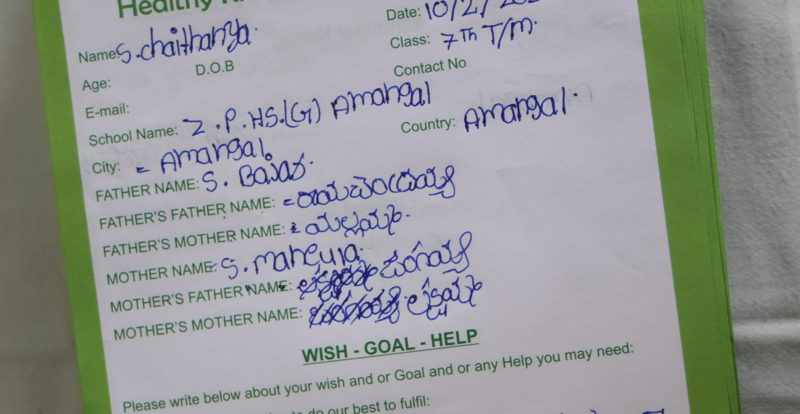 Healthy
Name: S. chaithanya. Date: 10/2/
Age: D.O.B Class: 7th T/m.
E-mail: Contact No
School Name: Z.P.HS.(G) Amangal
City: = Amangal. Country: Amangal.
FATHER NAME: S.
FATHER'S FATHER NAME: = రామచంద్రయ్య
FATHER'S MOTHER NAME: = యల్లమ్మ.
MOTHER NAME: S. manjula.
MOTHER'S FATHER NAME:
MOTHER'S MOTHER NAME: లక్ష్మమ్మ
WISH - GOAL - HELP
Please write below about your wish and or Goal and or any Help you may need:
do our best to fulfil: